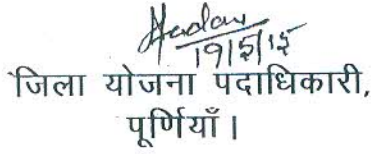 19/5/15
जिला योजना पदाधिकारी,
पूर्णियाँ।